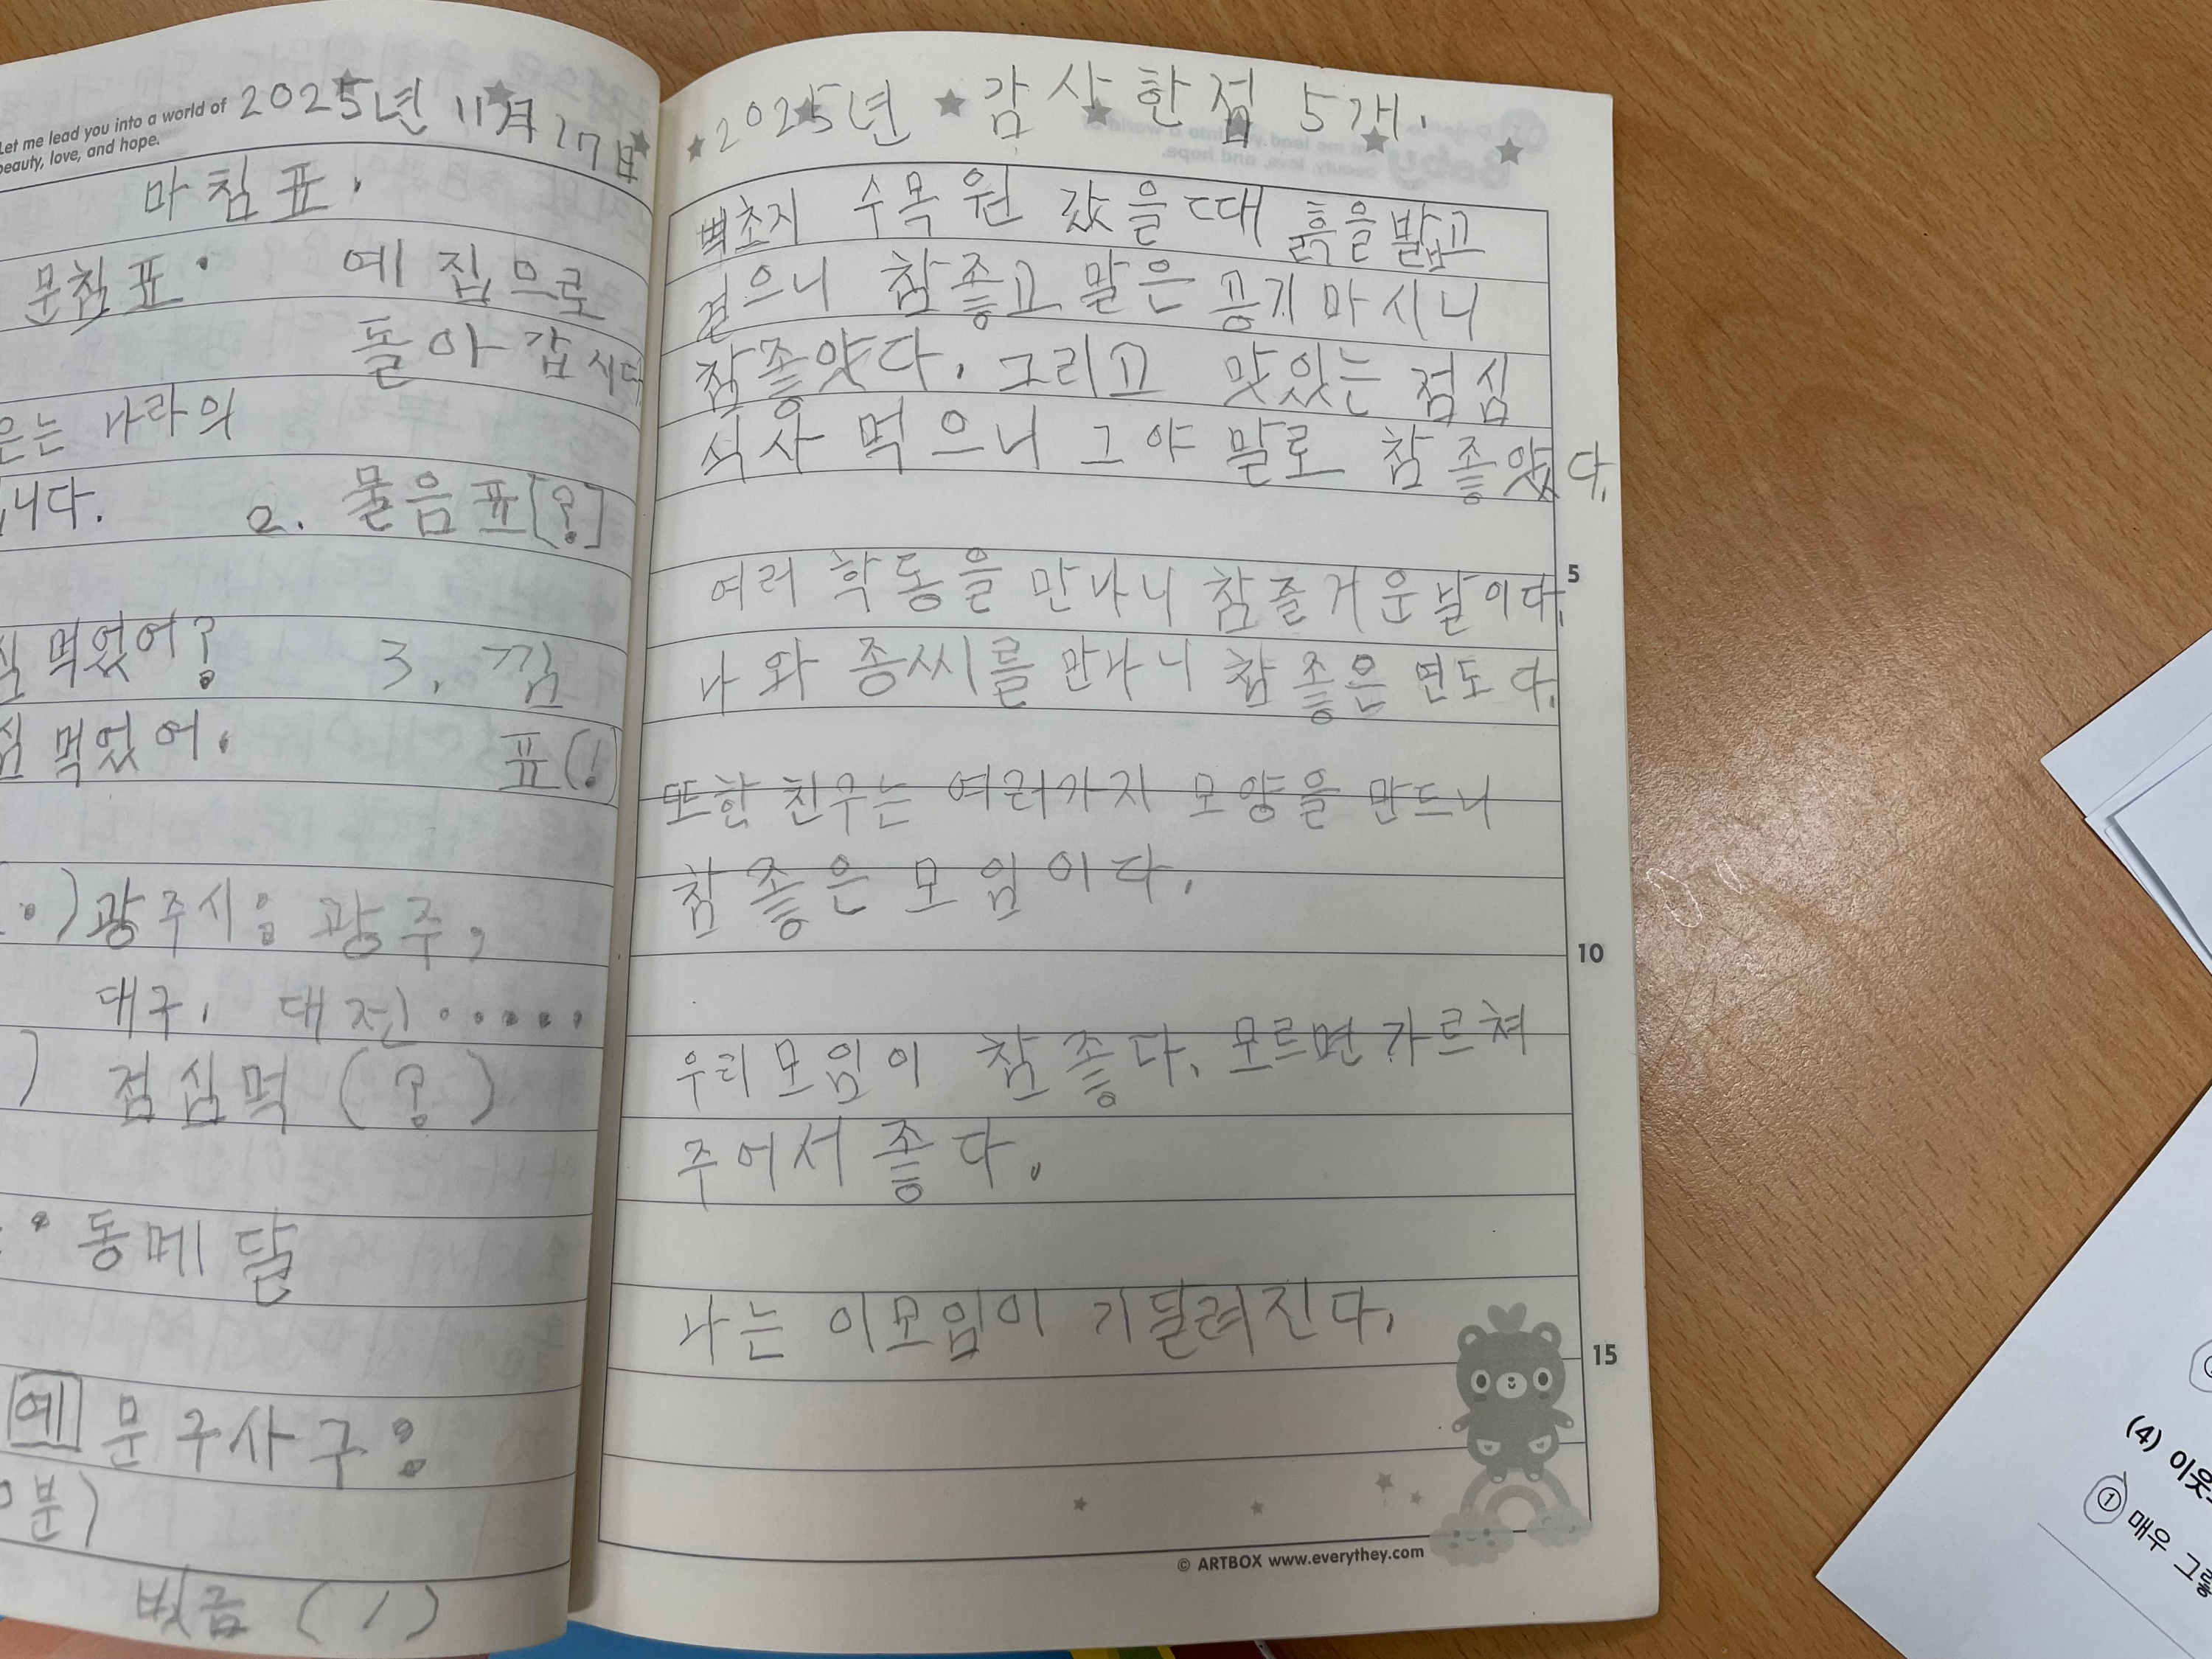 Let me lead you into a world of
beauty, love, and hope.
2025년 11月 17日
마침표.
문침표. 예 집으로
돌아갑시다
은는 나라의
니다. 2. 물음표[?]
먹었어? 3. 낌
먹었어. 표(!)
광주시: 광주,
대구, 대전.....
점심먹 (?)
동메달
예 문구사구:
분)
벗금 (/)
2025년 감사한점 5개.
벽초지 수목원 갔을때 흙을 밟고
걷으니 참좋고 말은 공기 마시니
참좋았다. 그리고 맛있는 점심
식사 먹으니 그야 말로 참 좋았다.
여러 학동을 만나니 참 즐거운 날이다.
나와 종씨를 만나니 참 좋은 면도다.
또한 친구는 여러가지 모양을 만드니
참 좋은 모임이다.
우리모임이 참 좋다. 모르면 가르쳐
주어서 좋다.
나는 이모임이 기달려진다.
5
10
15
© ARTBOX www.everythey.com
(4) 이웃
① 매우 그렇